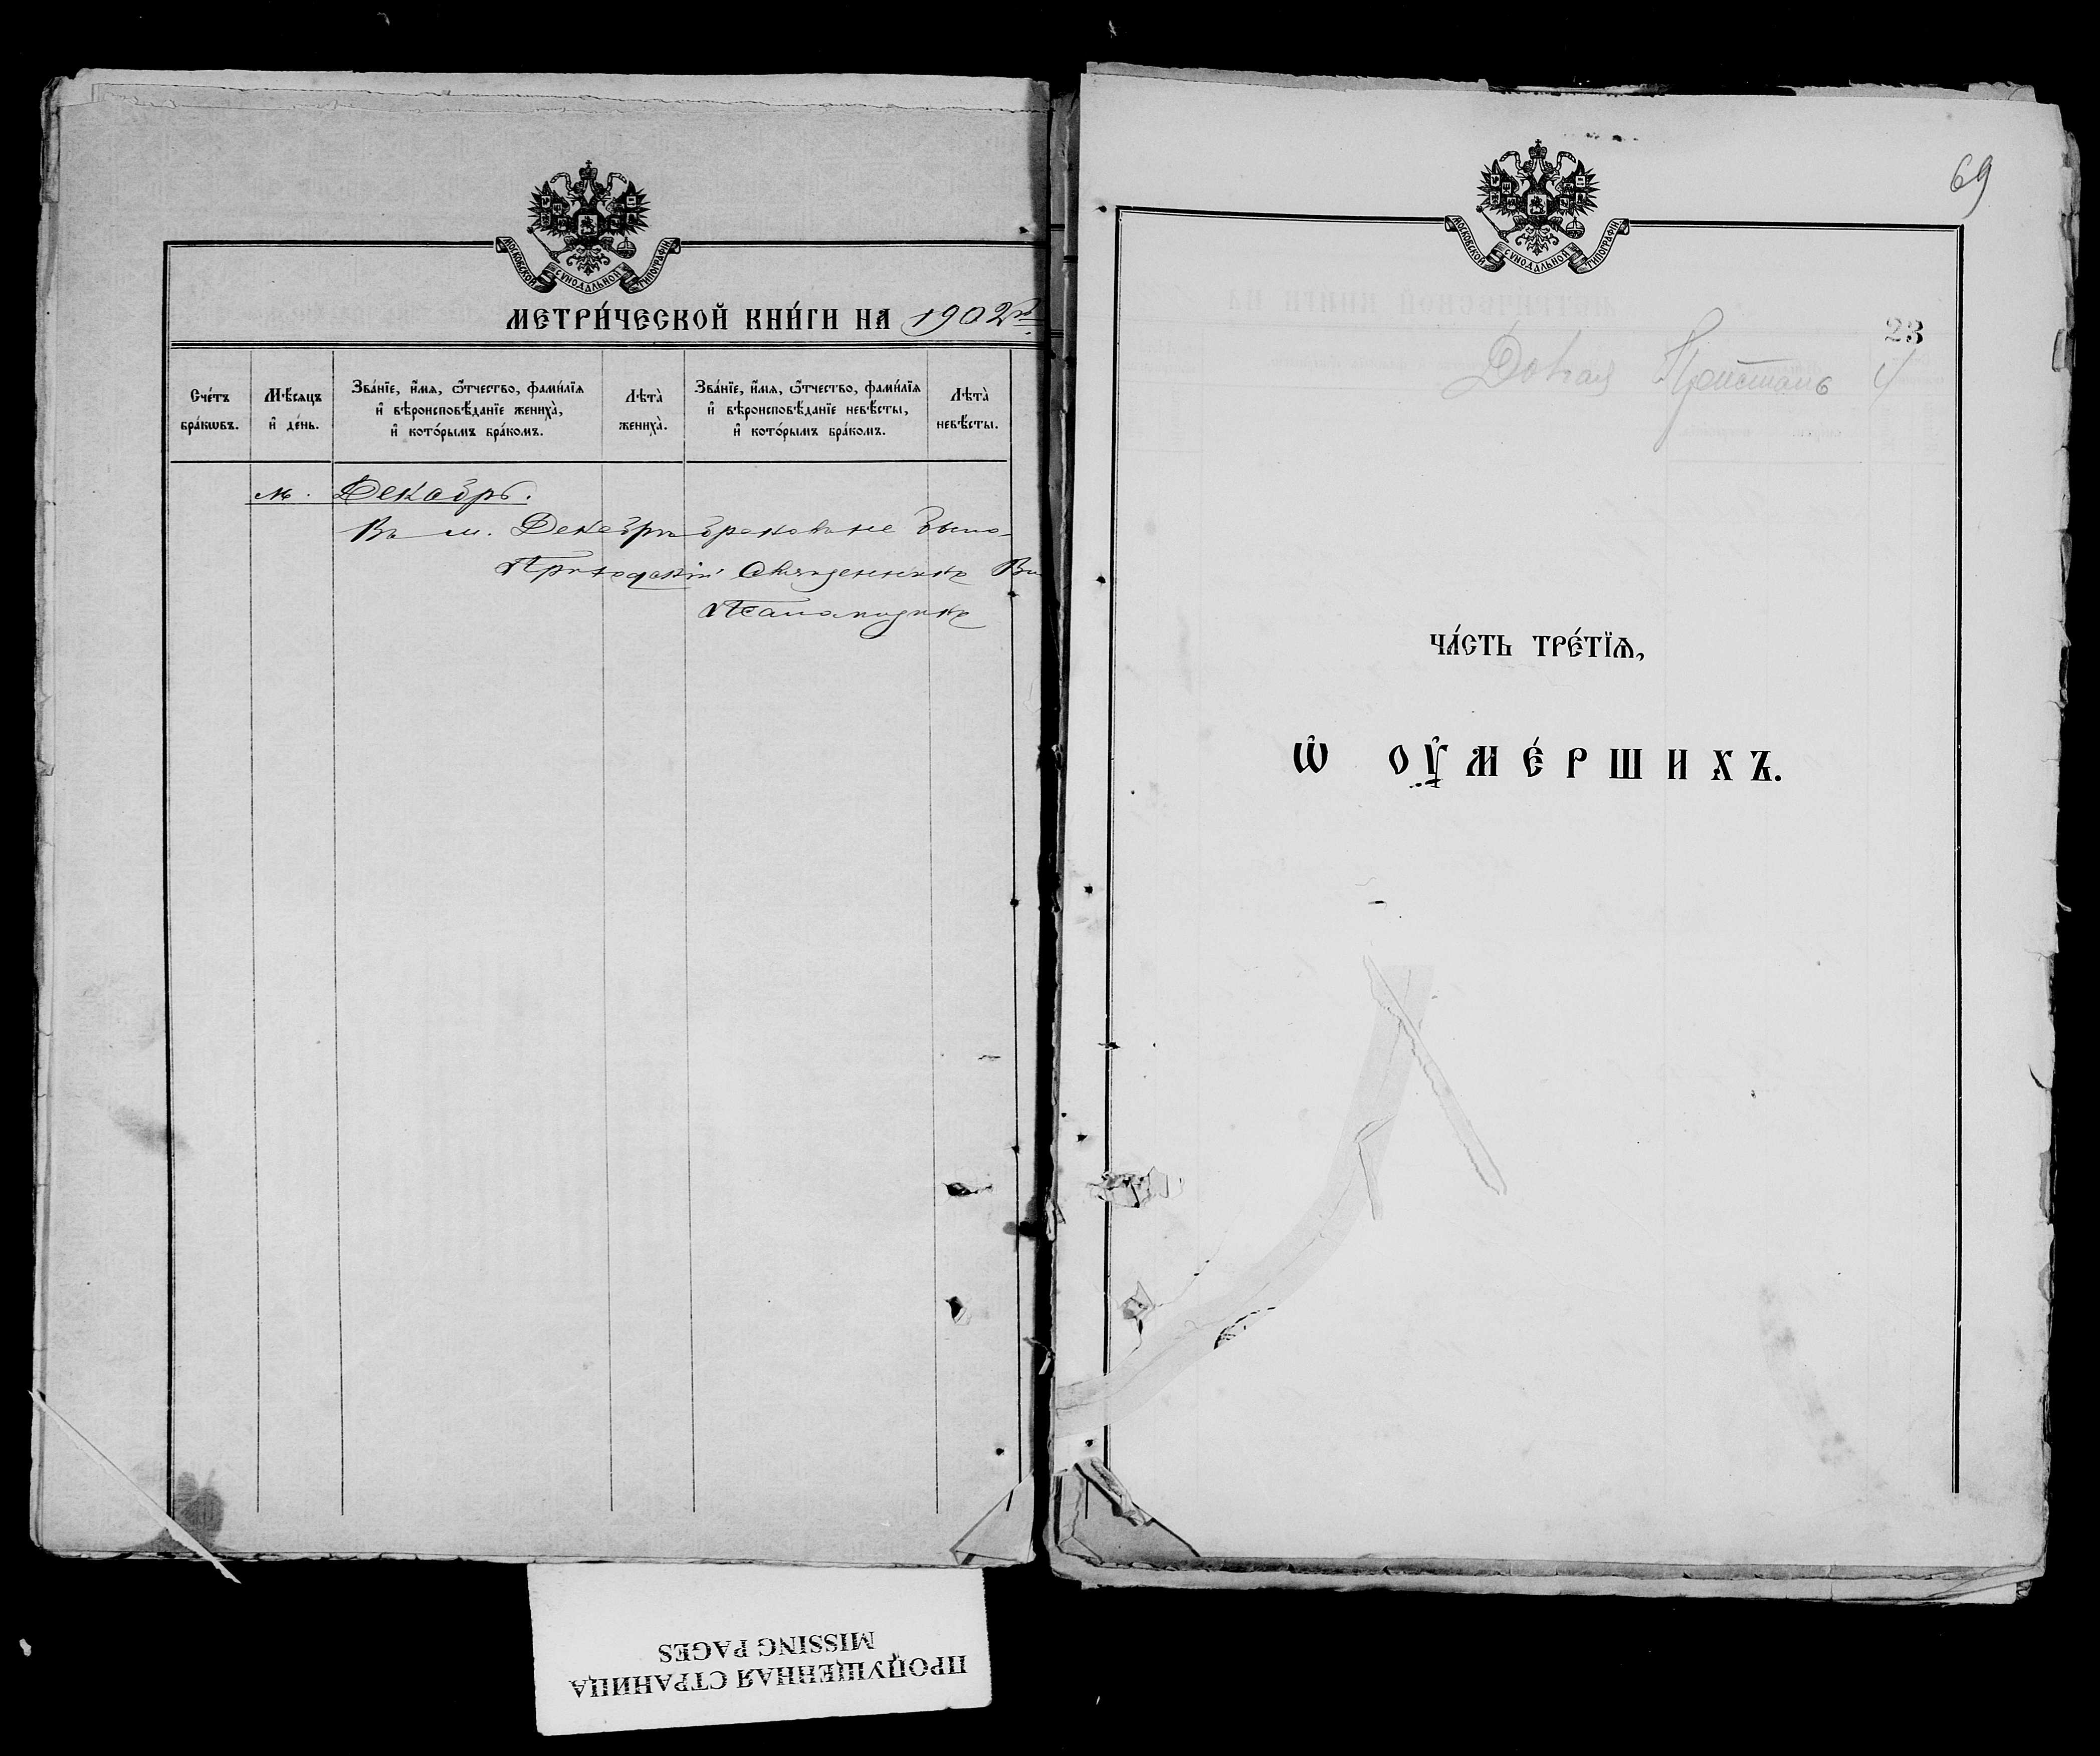 МОСКОВСКОЙ СѴНОДАЛЬНОЙ ТИПОГРАФІИ
МЕТРИ́ЧЕСКОЙ КНИ́ГИ НА 1902
Сче́тъ бра́кѡвъ.
Мѣ́сяцъ и҆ де́нь.
Зва́нїе, и҆́мя, ѻ҆́тчество, фамѝлїя
и҆ вѣроисповѣ́данїе жениха̀,
и҆ кото́рымъ бра́комъ.
Лѣта̀ жениха̀.
Зва́нїе, и҆́мя, ѻ҆́тчество, фамѝлїя
и҆ вѣроисповѣ́данїе невѣ́сты,
и҆ кото́рымъ бра́комъ.
Лѣта̀ невѣ́сты.
м. Декабрь.
Въ м. Декабрѣ браковъ не было
Приходскій Священникъ
Псаломщикъ
69
МОСКОВСКОЙ СѴНОДАЛЬНОЙ ТИПОГРАФІИ
23
Пристань 4
ЧА́СТЬ ТРЕ́ТЇѦ,
Ѡ҆ ОУ҆МЕ́РШИХЪ.
ПРОПУЩЕННАЯ СТРАНИЦА
MISSING PAGES